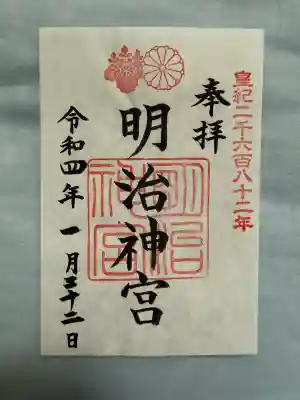 皇紀二千六百八十二年
奉拝
明治神宮
明治
神宮
令和四年一月三十二日